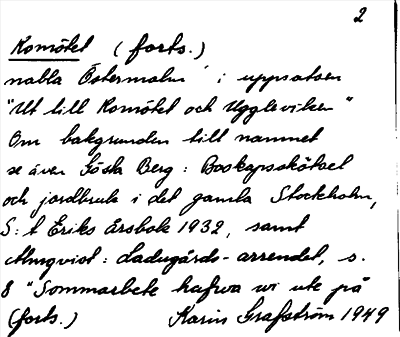 2
Komötet (forts.)
nabla Östermalm' i uppsatsen
"Ut till Komötet och Uggleviken"
Om bakgrunden till namnet
se även Gösta Berg: Boskapsskötsel
och jordbruk i det gamla Stockholm,
S:t Eriks årsbok 1932, samt
Almqvist: Ladugårds-arrendet, s.
8 "Sommarbete hafwa wi ute på
(forts.) Karin Grafström 1949